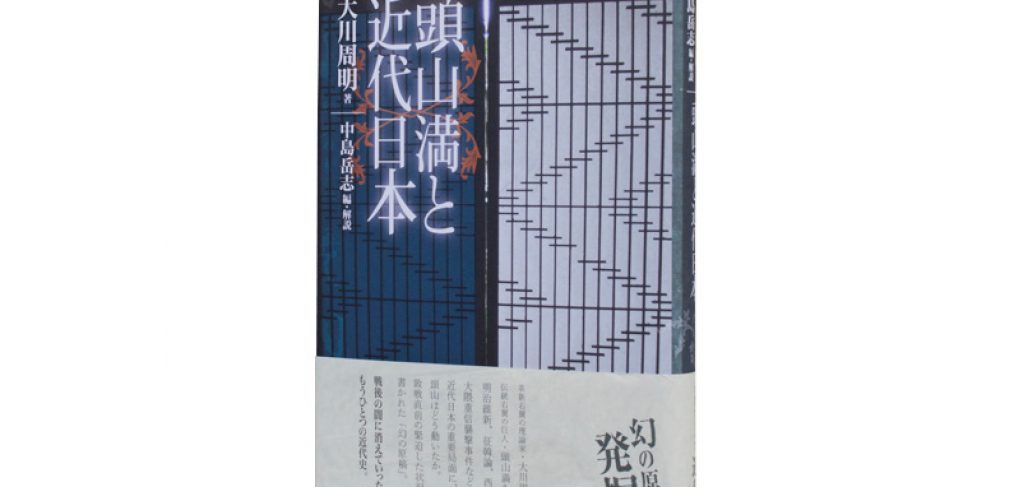 頭山満と
近代日本
大川周明 著
中島岳志 編・解説
島岳志 編・解説
幻の原
発掘
革新右翼の理論家・大川周
伝統右翼の巨人・頭山満を
明治維新、征韓論、西
大隈重信襲撃事件など
近代日本の重要局面に、
頭山はどう動いたか。
敗戦直前の緊迫した状況
書かれた「幻の原稿」。
戦後の闇に消えていった
もうひとつの近代史。